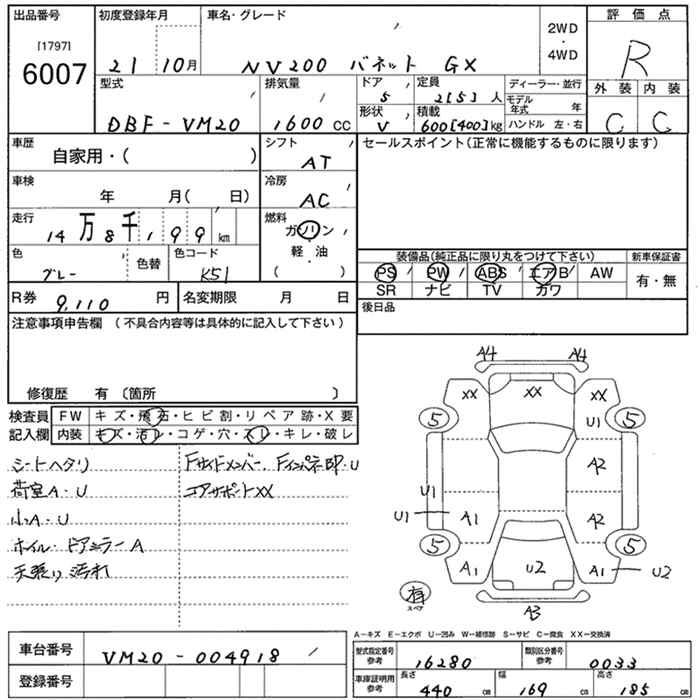 出品番号
[1797]
6007
初度登録年月
21 10月
車名・グレード
NV200 バネット GX
2WD
・
4WD
評価点
R
外装 内装
C C
型式
DBF-VM20
排気量
1600 CC
ドア
5
形状
V
定員
2[5]人
積載
600[400]kg
ディーラー・並行
モデル年式 年
ハンドル 左・右
車歴
自家用・( )
車検
年 月( 日)
走行
14万8千199km
色
グレー
色替
色コード
K51
シフト
AT
冷房
AC
燃料
ガソリン
軽・油
( )
セールスポイント(正常に機能するものに限ります)
装備品(純正品に限り丸をつけて下さい)
PS PW ABS エアB AW
SR ナビ TV カワ
新車保証書
有・無
R券 9,110 円
名変期限 月 日
後日品
注意事項申告欄 (不具合内容等は具体的に記入して下さい)
修復歴 有 〔箇所 〕
検査員記入欄
FW キズ・飛石・ヒビ割・リペア跡・X要
内装 キズ・汚レ・コゲ・穴・スレ・キレ・破レ
シートヘタリ
荷室A・U
小A・U
ホイル・ドアミラーA
天張り汚れ
Fサイドメンバー、Fインパネ部・U
コアサポートXX
A4 A4
XX XX XX
5 U1 5
A2
U1
U1 A1 A2
5 5
A1 U2 A1 U2
有
スペア
A3
A-キズ E-エクボ U-凹み W-補修跡 S-サビ C-腐食 XX-交換済
車台番号
VM20-004918
登録番号
型式指定番号
参考
16280
類別区分番号
参考
0033
車庫証明用
参考
長さ
440 cm
幅
169 cm
高さ
185 cm